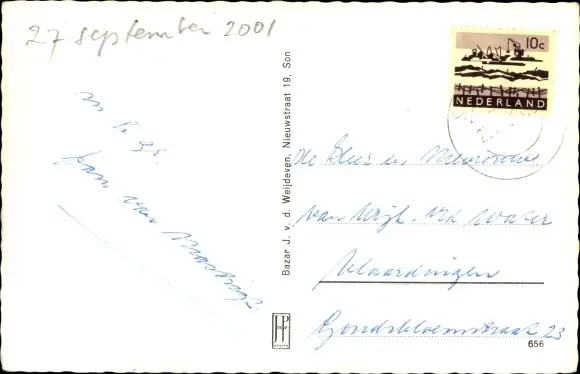 27 september 2001
10c
NEDERLAND
Bazar J. v. d. Weijdeven, Nieuwstraat 19, Son
Fam van
de Heer en Mevrouw
van Wijk. v.d. Water
Vlaardingen
Goudsbloemstraat 23
JP
656